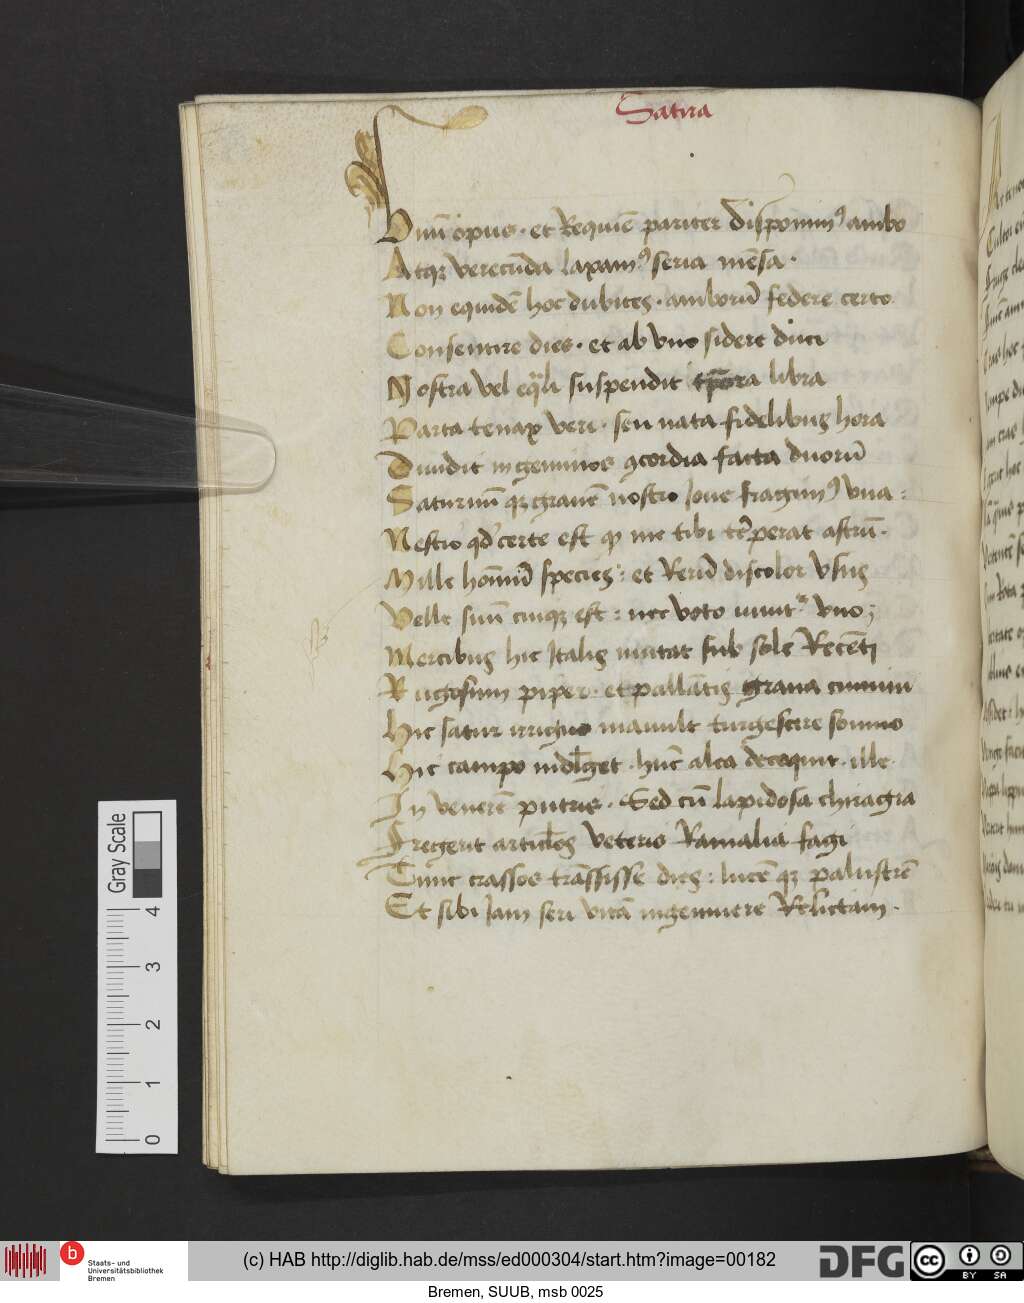 Satira
Vnū opus · et Requiē pariter disponimꝰ ambo
Atqꝫ verecūda laxamꝰ seria mēsa ·
Non equidē hoc dubites · amborū federe certo
Consentire dies · et ab vno sidere duci
Nostra vel eqͣli suspendit tp̄ora libra
Parca tenax veri · seu nata fidelibus hora
Diuidit in geminos ꝯcordia facta duorū
Saturnū qꝫ grauē nostro Ioue fragimꝰ vna :
Nestio qd̓ certe est qͦ me tibi tēperat astrū ·
Mille homīū species : et Rerū discolor vsus
Velle suū cuiqꝫ est : nec voto viuitᷣ vno ;
Mercibus hic Italis mutat sub sole Recēti
Rugosum piper · et pallētis grana cumini
Hic satur irriguo mauult turgescere somno
Hic campo indl̄get · hūc alea decoquit · ille
In venerē putris · Sed cū lapidosa chiragra
Fregerit articl̄os veteris Ramalia fagi
Tunc crassos trāssisse dies : lucē qꝫ palustrē
Et sibi Iam seri vitā ingemuere Relictam ·
Gray Scale
4
3
2
1
0
b
Staats- und
Universitätsbibliothek
Bremen
(c) HAB http://diglib.hab.de/mss/ed000304/start.htm?image=00182
DFG
cc BY SA
Bremen, SUUB, msb 0025